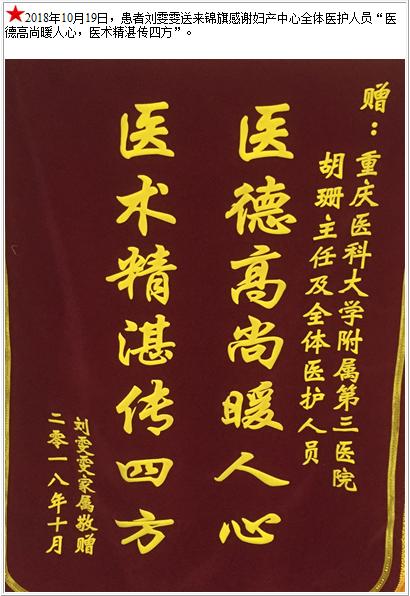 ★2018年10月19日，患者刘雯雯送来锦旗感谢妇产中心全体医护人员“医
德高尚暖人心，医术精湛传四方”。
赠：重庆医科大学附属第三医院
胡珊主任及全体医护人员
医德高尚暖人心
医术精湛传四方
刘雯雯家属敬赠
二零一八年十月